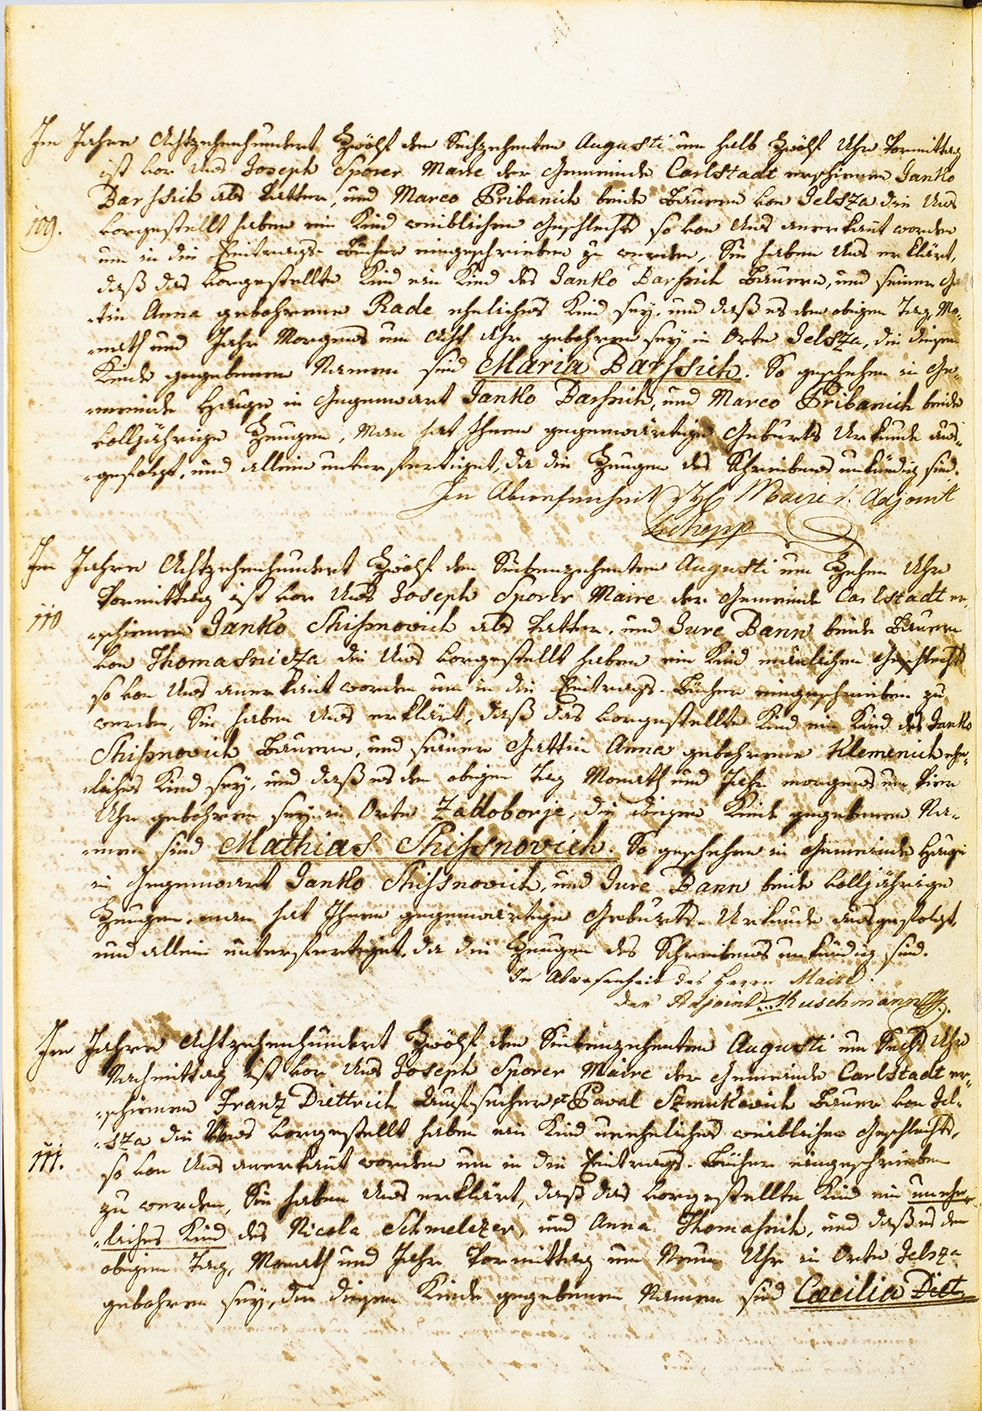 Im Jahre Achtzehenhundert Zwölf den Sechzehenten Augusti um halb Zwölf Uhr Vormittag
ist vor Uns Joseph Sporer Maire der Gemeinde Carlstadt erschienen Janko
Barssich als Vatter, und Marco Pribanich beide Bauern von Jelsza die Uns
109. vorgestellt haben ein Kind weiblichen Geschlechts so von Uns anerkant worden
um in die Eintrags-Bücher eingeschrieben zu werden, Sie haben Uns erklärt,
daß das vorgestellte Kind ein Kind des Janko Barssich Bauern, und seiner Ga-
ttin Anna gebohrene Rade eheliches Kind sey, und daß es den obigen Tag Mo-
nath und Jahr Morgens um Acht Uhr gebohren sey in Orte Jelsza, die diesem
Kinde gegebenen Namen sind Maria Barssich. So geschehen in Ge-
meinde Hause in Gegenwart Janko Barssich, und Marco Pribanich beide
volljährige Zeugen, Man hat Ihnen gegenwärtige Geburts Urkunde aus-
gefolgt, und allein unterfertiget, da die Zeugen des Schreibens unkündig sind.
In Abwesenheit Maire Adjoint
Im Jahre Achtzehenhundert Zwölf den Siebenzehenten Augusti um Zehen Uhr
Vormittag ist vor Uns Joseph Sporer Maire der Gemeinde Carlstadt er-
110 schienen Janko Skissnovich als Vatter, und Jure Bann beide Bauern
von Thomasnicza die Uns vorgestellt haben ein Kind mänlichen Geschlechts
so von Uns anerkant worden um in die Eintrags-Bücher eingeschrieben zu
werden, Sie haben Uns erklärt, daß das vorgestellte Kind ein Kind des Janko
Skissnovich Bauern, und seiner Gattin Anna gebohrene Klemenich ehe-
liches Kind sey, und daß es den obigen Tag Monath und Jahr morgens um Vier
Uhr gebohren sey in Orte Zadoborje, die diesem Kinde gegebenen Na-
men sind Mathias Skissnovich. So geschehen in Gemeinde Hause
in Gegenwart Janko Skissnovich, und Jure Bann beide volljährige
Zeugen, man hat Ihnen gegenwärtige Geburts-Urkunde ausgefolgt,
und allein unterfertiget, da die Zeugen des Schreibens unkündig sind.
In Abwesenheit des Herrn Maire
der Adjoint Kuschmann
Im Jahre Achtzehenhundert Zwölf den Siebenzehenten Augusti um Sechs Uhr
Nachmittag ist vor Uns Joseph Sporer Maire der Gemeinde Carlstadt er-
schienen Franz Diettrich et Paval Szmukovich Bauer von Jel-
sza die Uns vorgestellt haben ein Kind uneheliches weiblichen Geschlechts,
111. so von Uns anerkant worden um in die Eintrags-Bücher eingeschrieben
zu werden, Sie haben Uns erklärt, daß das vorgestellte Kind ein unehe-
liches Kind des Nicola Schmelczer, und Anna Thomassich, und daß es den
obigen Tag, Monath und Jahr Vormittag um Neun Uhr in Orte Jelsza
gebohren sey, die diesem Kinde gegebenen Namen sind Cæcilia Diet